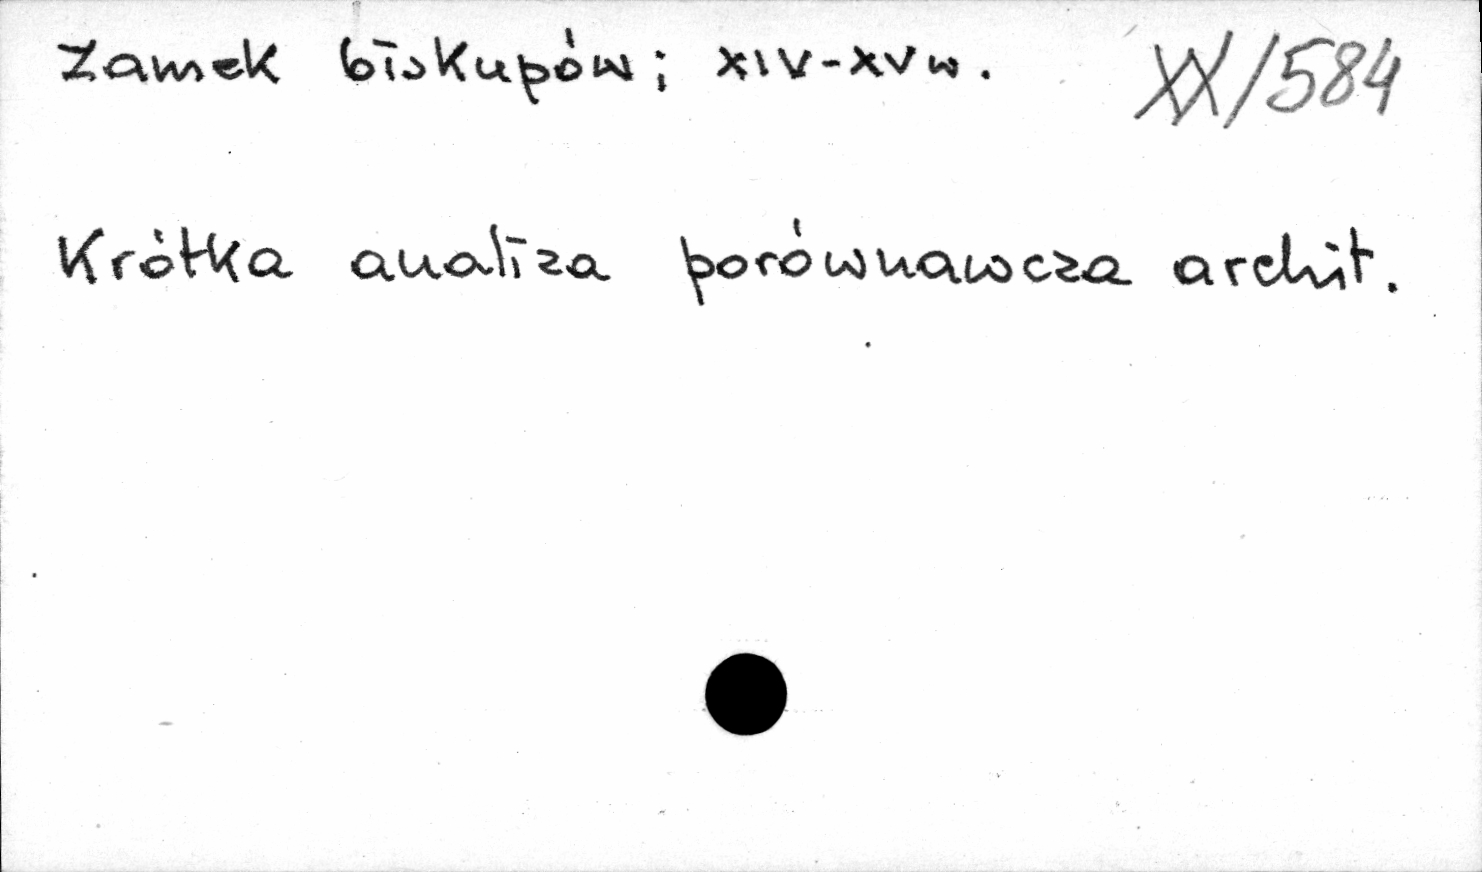 Zamek biskupów; XIV-XV w. XX/584
Krótka analiza porównawcza archit.